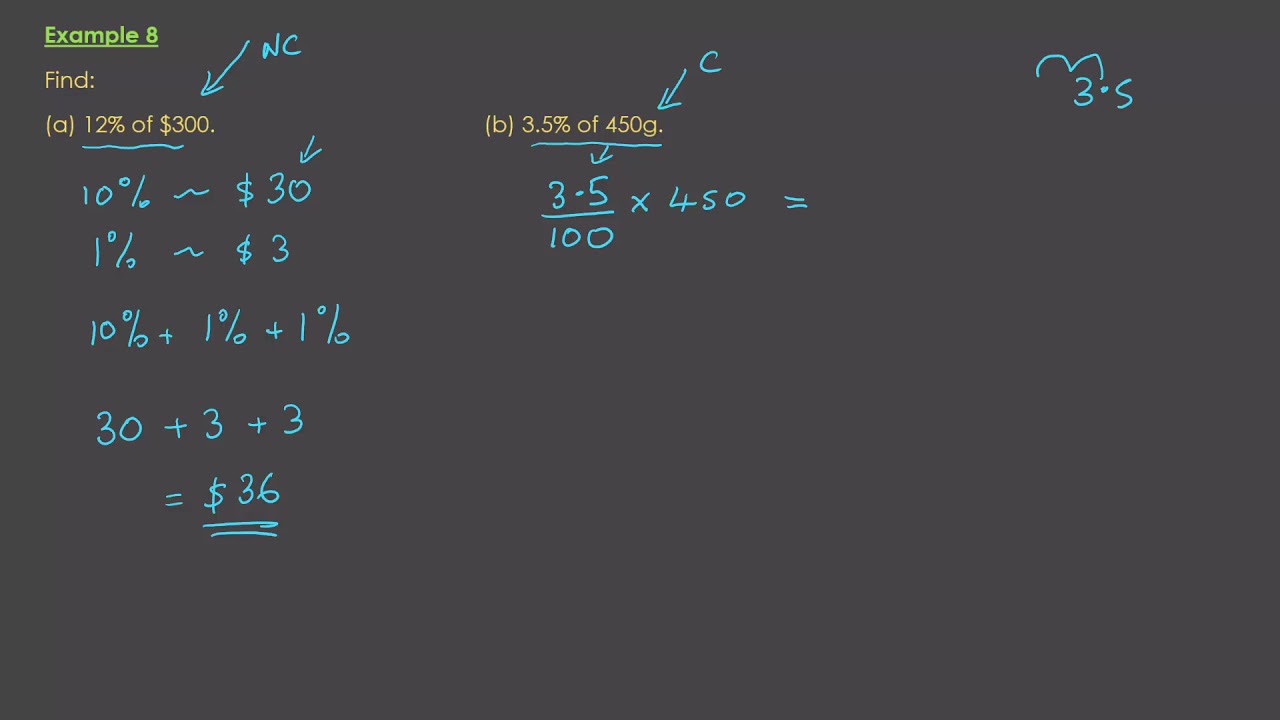 Example 8
NC
Find:
(a) 12% of $300.
10% ~ $30
1% ~ $3
10% + 1% + 1%
30 + 3 + 3
= $36
C
(b) 3.5% of 450g.
3·5/100 × 450 =
3·5